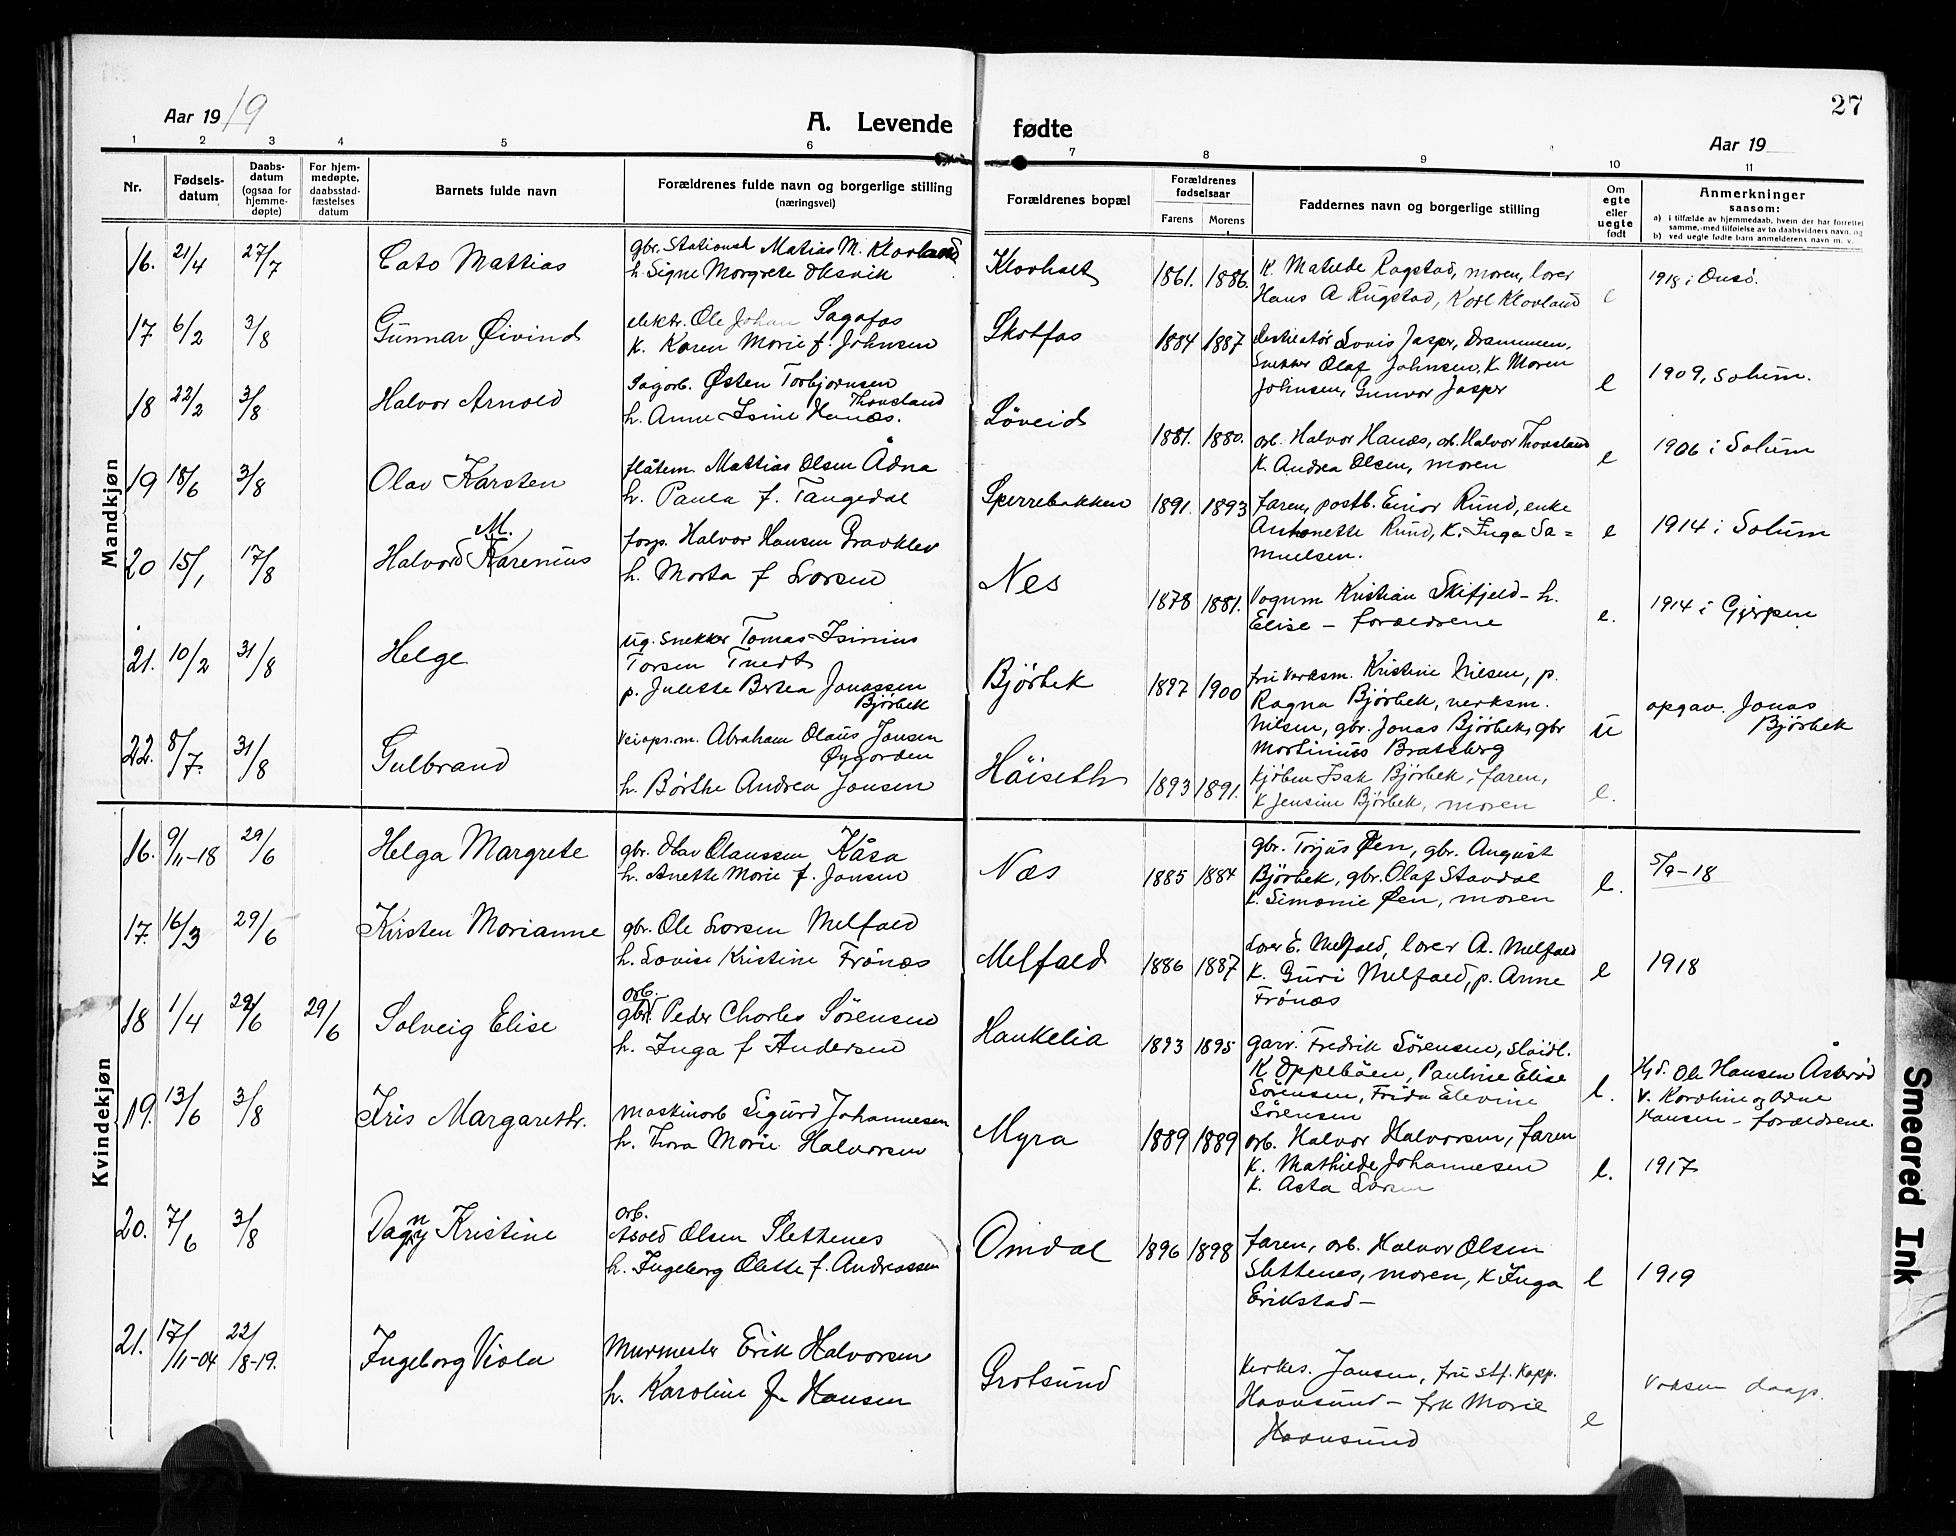 27
Aar 1919
A. Levende fødte
Aar 19
1 2 3 4 5 6 7 8 9 10 11
Nr.
Fødsels-
datum
Daabs-
datum
(ogsaa for
hjemme-
døpte)
For hjem-
medøpte,
daabsstad-
fæstelses
datum
Barnets fulde navn
Forældrenes fulde navn og borgerlige stilling
(næringsvei)
Forældrenes bopæl
Forældrenes
fødselsaar
Farens Morens
Faddernes navn og borgerlige stilling
Om
egte
eller
uegte
født
Anmerkninger
saasom:
a) i tilfælde av hjemmedaab, hvem der har forrettet
samme, med tilføielse av to daabsvidners navn, og
b) ved uegte fødte barn anmelderens navn m. v.
Mandkjøn
16. 21/4 27/7
Cato Mattias
gbr. Stationsk Matias M. Klovland
h. Signe Margrete Olsvik
Klovholt
1861. 1886.
K. Matilde Ragstad, moren, lærer
Hans A Rugstad, Karl Klovland
e
1918 i Onsö.
17 6/2 3/8
Gunnar Øivind
elektr. Ole Johan Sagafos
K. Karen Marie f. Johnsen
Skotfos
1884 1887
Louis Jasper, Drammen,
Snekker Olaf Johnsen, K. Maren
Johnsen, Gunvor Jasper
e
1909, Solum.
18 22/2 3/8
Halvor Arnold
Sagarb. Østen Torbjørnsen
Thovsland
h. Anne Isine Hanæs.
Löveid
1881. 1880.
arb. Halvor Hanæs, arb. Halvor Thovsland
K. Andrea Olsen, moren
e
1906 i Solum
19 18/6 3/8
Olav Karsten
flåtem. Mattias Olsen Ådna
h. Paula f. Tangedal
Sperrebakken
1891. 1893
faren, postb. Einar Rund, enke
Antonette Rund, K. Inga Sa=
muelsen.
e
1914 i Solum
20 15/1 17/8
M.
Halvord Karenius
forp. Halvor Hansen Gravklev
h. Marta f Larsen
Nes
1878 1881.
Vognm Kristian Skifjeld – h.
Elise – forældrene
e.
1914 i Gjerpen
21. 10/2 31/8
Helge
ug. snekker Tomas Isinius
Torsen Tvedt
p. Julette Berta Jonassen
Bjørbek
Bjørbek
1897 1900
fru Verksm. Kristine Nilsen, p.
Ragna Bjørbek, verksm.
Nilsen, gbr. Jonas Bjørbek, gbr
Martinius Bratsberg
u
opgav. Jonas
Bjørbek
22. 8/7. 31/8
Gulbrand
Veiopr.m. Abraham Olaus Jansen
Øygarden
h. Børthe Andrea Jansen
Håiseth
1893 1891.
Kjøbm Isak Bjørbek, faren,
K Jensine Bjørbek, moren
e.
Kvindekjøn
16. 9/11-18 29/6
Helga Margrete
gbr. Olav Olaussen Kåsa
h. Anette Marie f. Jansen
Næs
1885 1884
gbr. Torjus Øen, gbr. August
Bjørbek, gbr. Olaf Stavdal
K. Simonie Øen, moren
e.
5/9-18
17. 16/3 29/6
Kirsten Marianne
gbr. Ole Larsen Melfald
h. Lovise Kristine Frönæs
Melfald
1886 1887
Lærer E. Melfald, lærer A. Melfald
K. Guri Melfald, p. Anne
Frönæs
e
1918
18 1/4 29/6 29/6
Solveig Elise
arb.
gbr. Peder Charles Sörensen
h. Inga f Andersen
Haukelia
1893 1895
garv. Fredrik Sörensen, sløidl.
K Oppeböen, Pauline Elise
Sörensen, Frida Elevine
Sörensen
e.
Hjd. Ole Hansen Åsterød
v. Karoline og Adne
Hansen – forældrene.
19. 13/6 3/8
Iris Margarethe.
Maskinarb Sigurd Johannesen
h. Thora Marie Halvorsen
Myra
1889 1889
arb. Halvor Halvorsen, faren
K. Mathilde Johannesen
K. Asta Larsen
e.
1917
20. 7/6 3/8
Dagny Kristine
arb.
Asold Olsen Slettenes
h. Ingeborg Olette f. Andreassen
Omdal
1896 1898
faren, arb. Halvor Olsen
Slettenes, moren, K Inga
Erikstad –
e
1919
21. 17/11-04 22/8-19.
Ingeborg Viola
Murmester Erik Halvorsen
h. Karoline f. Hansen
Grotsund
Kirkes. Jansen, fru stf. Kapp.
Havnsund – frk Marie
Havnsund
e
Voksen daap.
Smeared Ink